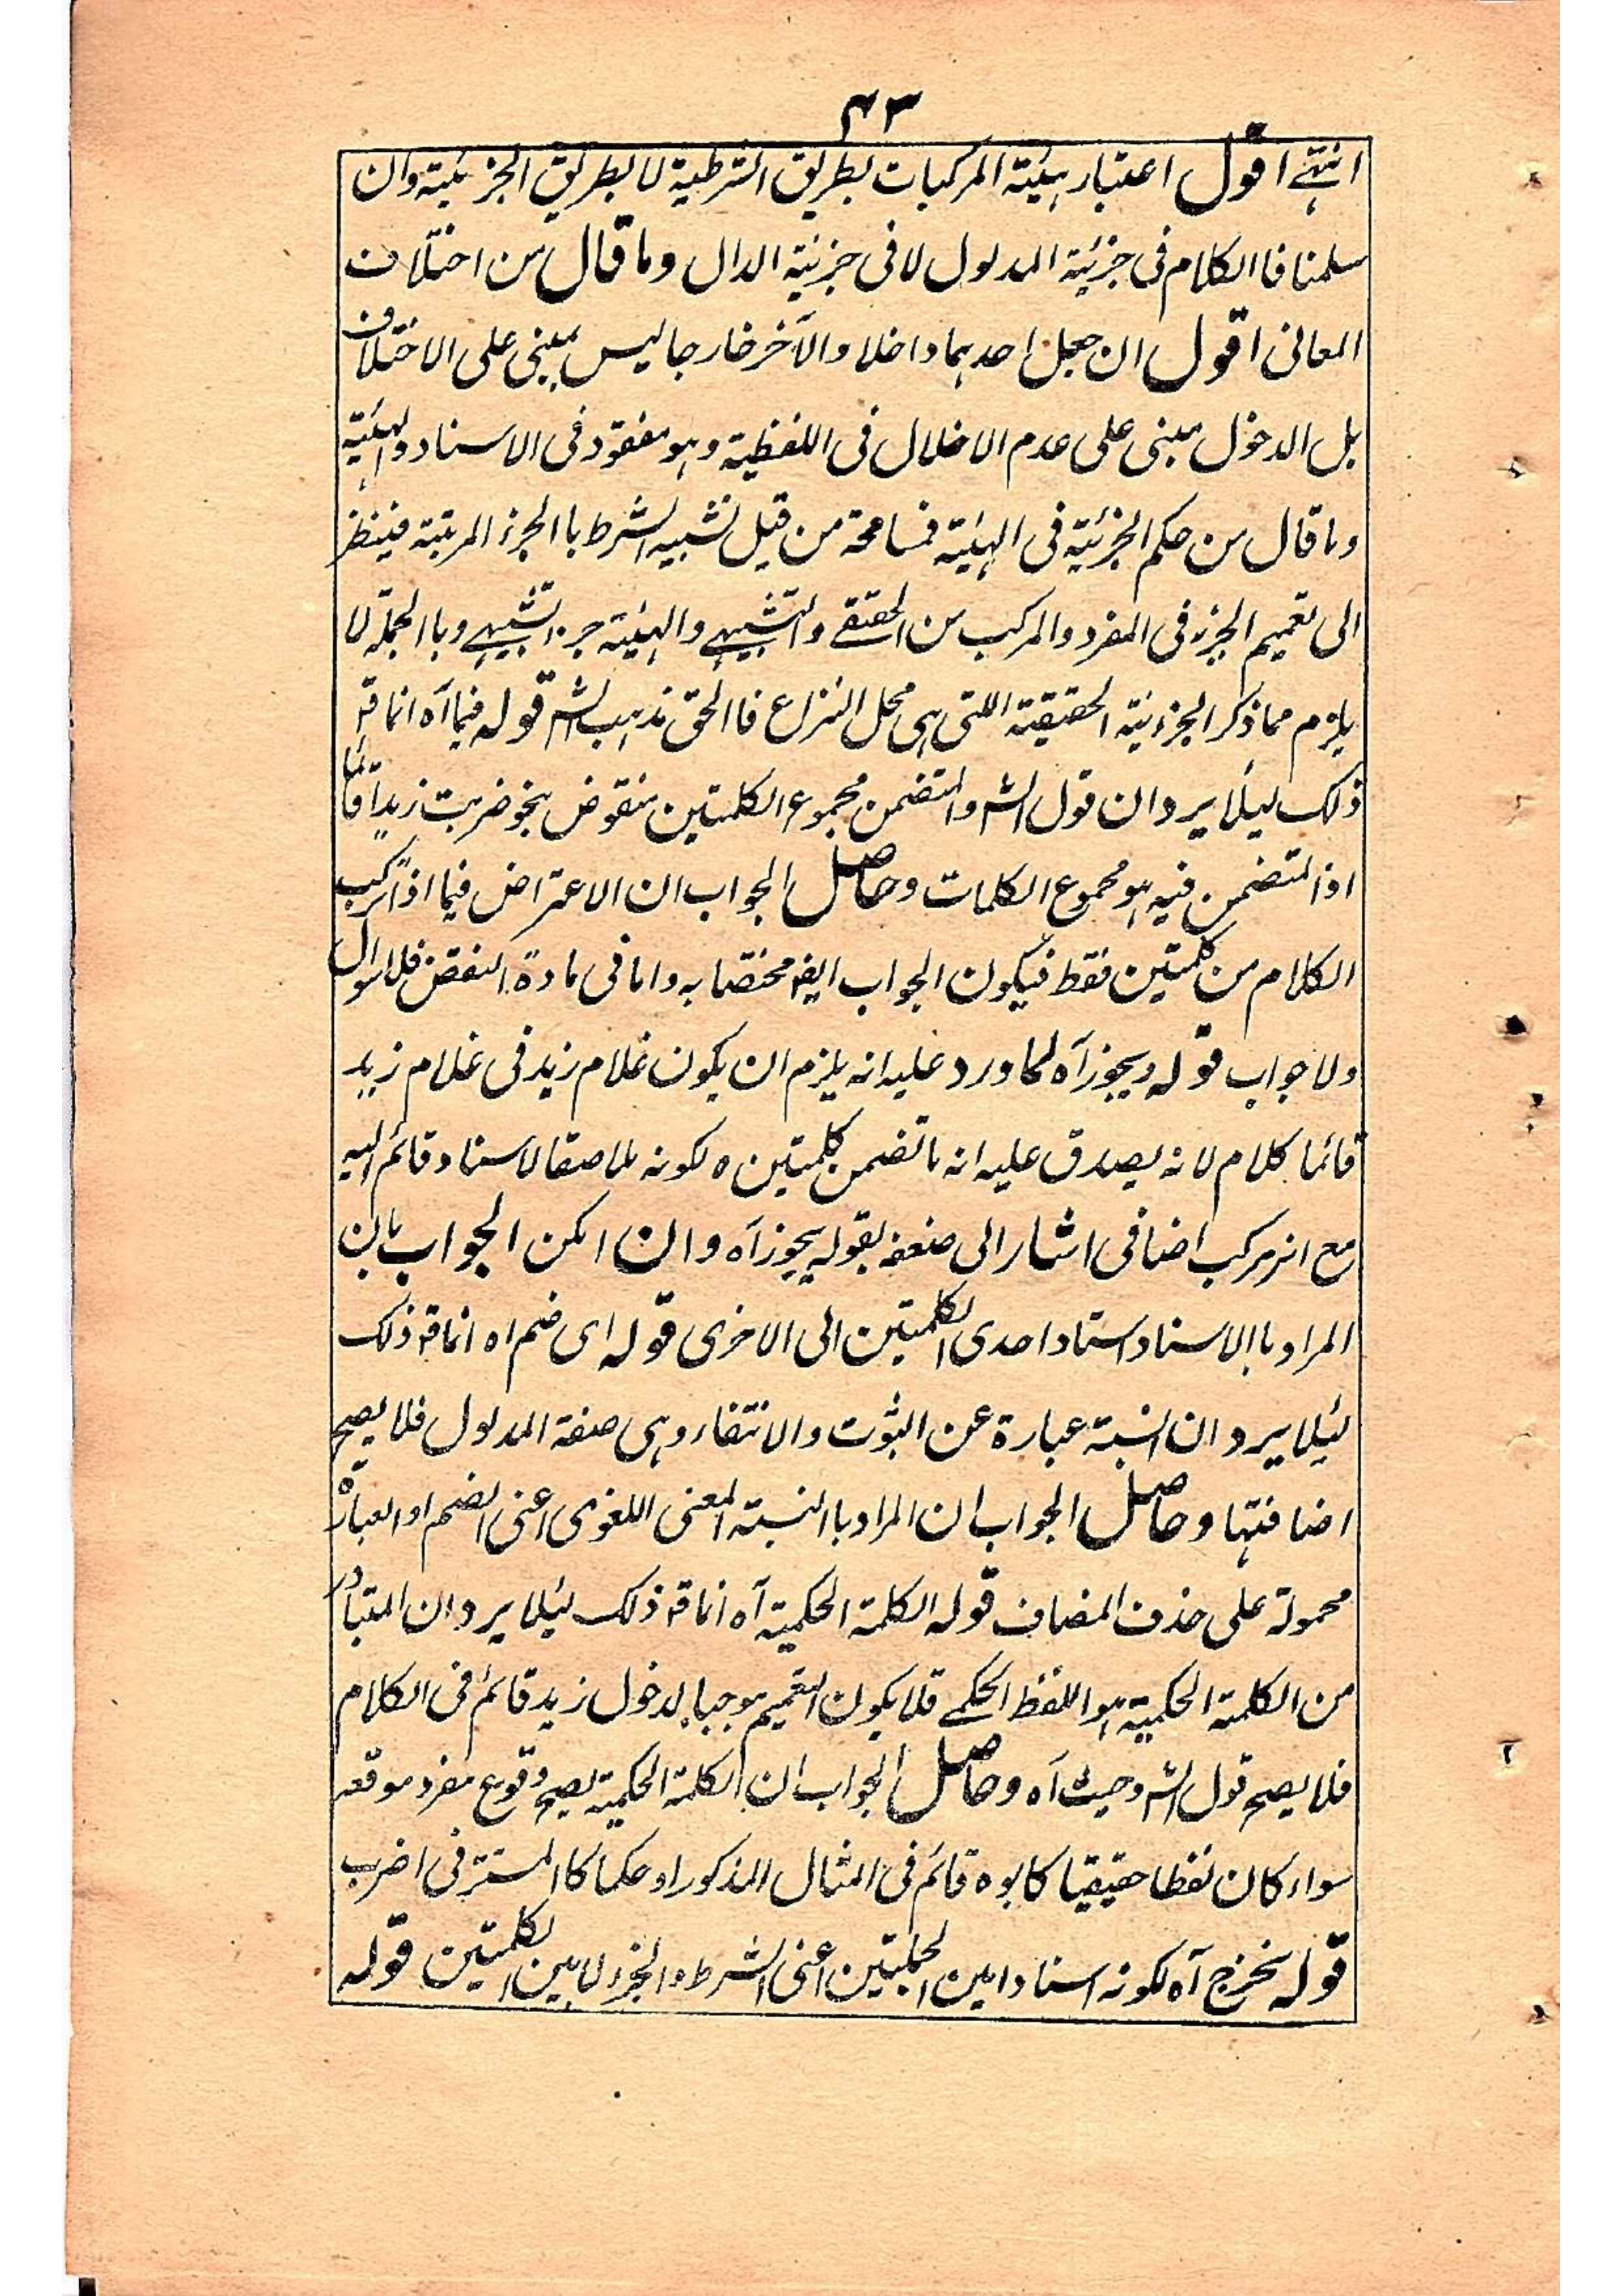 ۴۳
انتہے اقول اعتبار ہیئتہ المرکبات بطریق الشرطیۃ لا بطریق الجزئیتہ وان
سلمنا فا الکلام فی جزئیۃ المدلول لا فی جزئیتہ الدال وما قال من اختلاف
المعانی اقول ان جعل احدہما داخلا والآخر خارجا لیس بمبنی علی الاختلاف
بل الدخول مبنی علی عدم الاخلال فی اللفظیۃ وہو مفقود فی الاسناد والہیئۃ
وما قال من حکم الجزئیۃ فی الہیئۃ فمسامحۃ من قبیل تشبیہ الشرط با الجزء المرتبتہ فینظر
الی تعمیم الجزء فی المفرد والمرکب من الحقیقے والتشبیہے والہیئۃ جزء تشبیہے وبا الجملۃ لا
یلزم مما ذکر الجزئیۃ الحقیقیۃ اللتی ہی محل النزاع فا الحق مذہب الش قولہ فیما آہ انما قہ
ذلک لیئلا یرد ان قول الش والمتضمن مجموع الکلمتین منقوض بنحو ضربت زیداً قائما
اذ المتضمن فیہ ہو مجموع الکلمات وحاصل الجواب ان الاعتراض فیما اذا ترکب
الکلام من کلمتین فقط فیکون الجواب ایضہ مختصا بہ واما فی مادۃ النقض فلا سوال
ولا جواب قولہ ویجوز آہ لما ورد علیہ انہ یلزم ان یکون غلام زید فی غلام زید
قائما کلام لانہ یصدق علیہ انہ ما تضمن کلمتین ہ لکونہ ملاصقا لاسناد قائم الیہ
مع انہ مرکب اضافی اشار الی ضعفہ بقولہ یجوز آہ وان امکن الجواب بان
المراد با الاسناد اسناد احدی الکلمتین الی الاخری قولہ ای ضم اہ انما قہ ذلک
لیئلا یرد ان النسبتہ عبارۃ عن الثبوت والانتفاء وہی صفۃ المدلول فلا یصح
اضافتہا وحاصل الجواب ان المراد با النسبتہ المعنی اللغوی اعنی الضم او العبارۃ
محمولۃ علی حذف المضاف قولہ الکلمۃ الحکمیۃ آہ انما قہ ذلک لیئلا یرد ان المتبادر
من الکلمۃ الحکمیۃ ہو اللفظ الحکمے فلا یکون التعمیم موجبا لدخول زید قائم فی الکلام
فلا یصح قول الش وحیث آہ وحاصل الجواب ان الکلمۃ الحکمیۃ یصح وقوع مفرد موقعہ
سواء کان لفظا حقیقیا کابوہ قائم فی المثال المذکور او حکما کا المستتر فی اضرب
قولہ یخرج آہ لکونہ اسنادا بین الجملتین اعنی الشرط والجزء لا بین الکلمتین قولہ